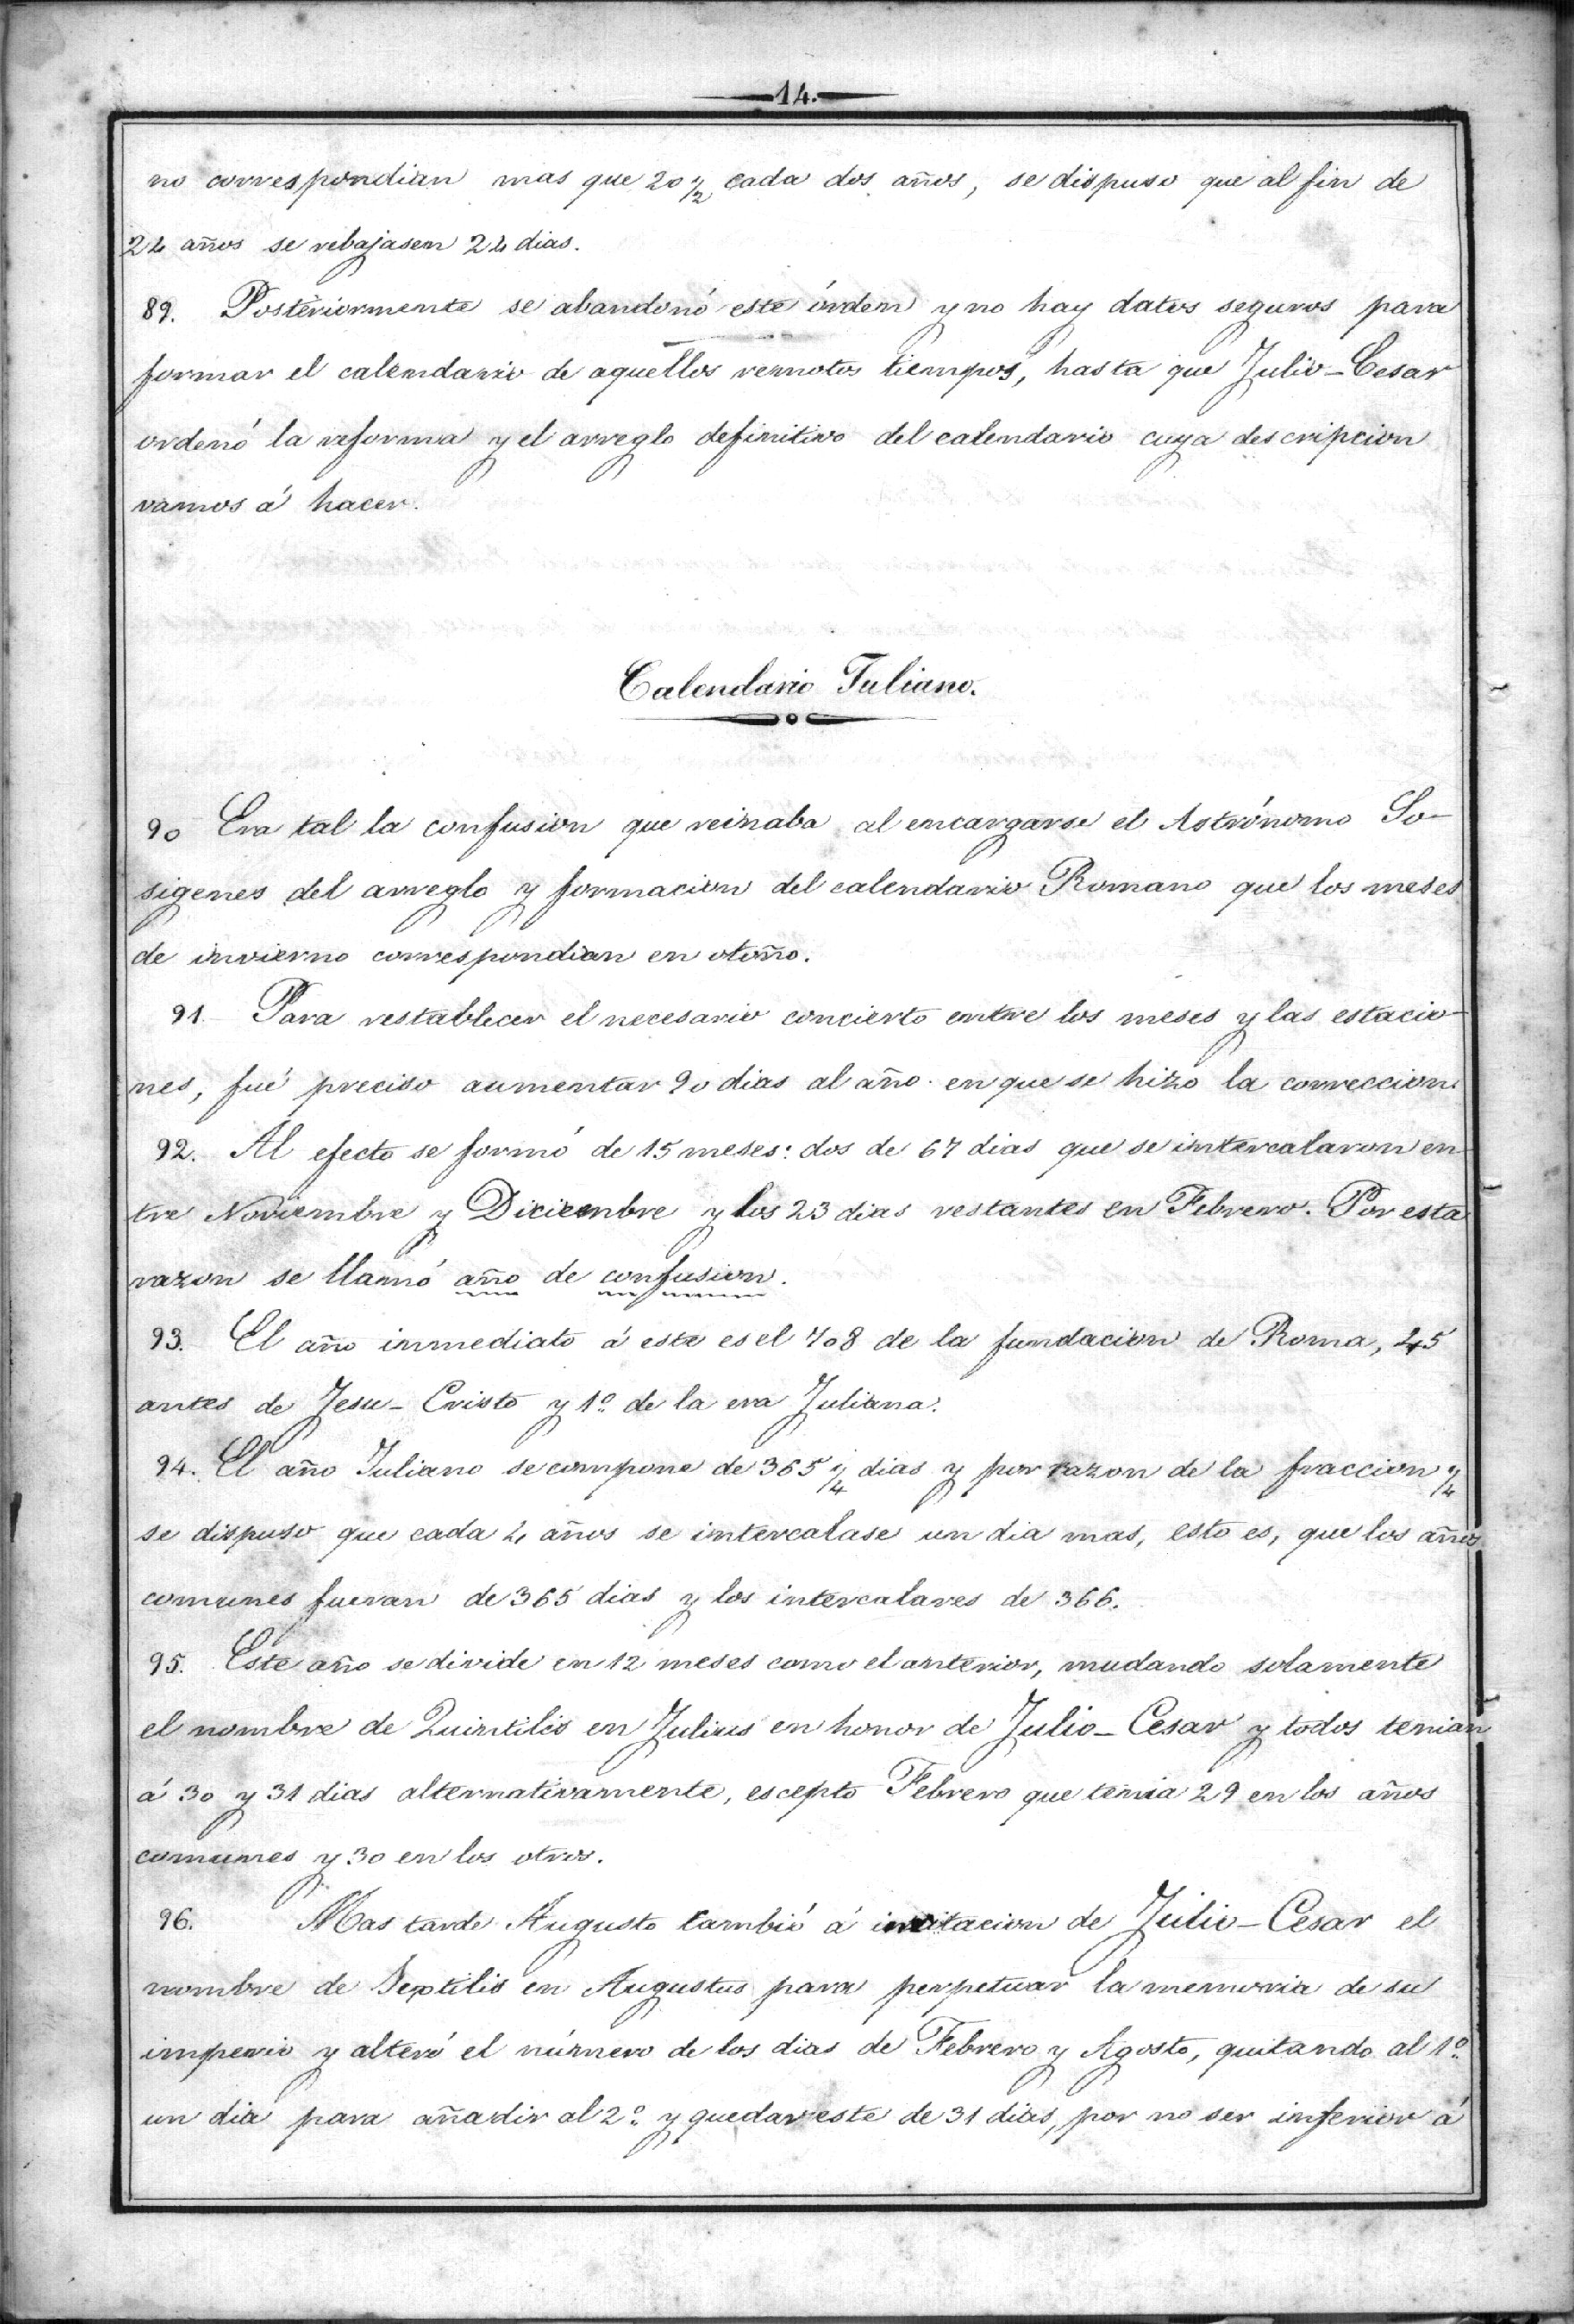 14.
no correspondian mas que 20 1/2 cada dos años, se dispuso que al fin de
24 años se rebajasen 24 dias.
89. Posteriormente se abandonó este órden y no hay datos seguros para
formar el calendario de aquellos remotos tiempos, hasta que Julio-Cesar
ordenó la reforma y el arreglo definitivo del calendario cuya descripcion
vamos á hacer.
Calendario Juliano.
90 Era tal la confusion que reinaba al encargarse el Astrónomo So-
sigenes del arreglo y formacion del calendario Romano que los meses
de invierno correspondian en otoño.
91 Para restablecer el necesario concierto entre los meses y las estacio-
nes, fué preciso aumentar 90 dias al año en que se hizo la correccion.
92. Al efecto se formó de 15 meses: dos de 67 dias que se intercalaron en-
tre Noviembre y Diciembre y los 23 dias restantes en Febrero. Por esta
razon se llamó año de confusion.
93. El año inmediato á este es el 708 de la fundacion de Roma, 45
antes de Jesu-Cristo y 1º de la era Juliana.
94. El año Juliano se compone de 365 1/4 dias y por razon de la fraccion 1/4
se dispuso que cada 4 años se intercalase un dia mas, esto es, que los años
comunes fueran de 365 dias y los intercalares de 366.
95. Este año se divide en 12 meses como el anterior, mudando solamente
el nombre de Quintilis en Julius en honor de Julio-Cesar y todos tenian
á 30 y 31 dias alternativamente, escepto Febrero que tenia 29 en los años
comunes y 30 en los otros.
96. Mas tarde Augusto cambió á imitacion de Julio-Cesar el
nombre de Sextilis en Augustus para perpetuar la memoria de su
imperio y alteró el número de los dias de Febrero y Agosto, quitando al 1º
un dia para añadir al 2º y quedar este de 31 dias, por no ser inferior á